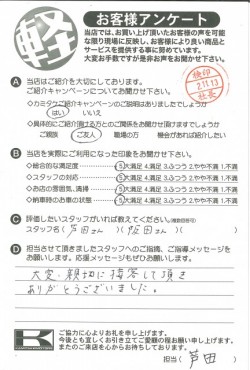 軽
お客様アンケート
当店では、お買い上げ頂いたお客様の声を可能
な限り現場に反映し、お客様により良い商品と
サービスを提供する事に努めています。
大変お手数ですが是非お声をお聞かせ下さい。
検印
2.11.13
社長
A 当店はご紹介を大切にしております。
ご紹介キャンペーンについてお聞かせ下さい。
◇カミタケご紹介キャンペーンの説明はありましたでしょうか
はい いいえ
◇具体的にご紹介頂ける方とのご関係をお聞かせ頂けますでしょうか
ご親族 ご友人 職場の方 機会があれば紹介したい
B 当店を実際にご利用になった印象をお聞かせ下さい。
◇総合的な満足度 5.大満足 4.満足 3.ふつう 2.やや不満 1.不満
◇スタッフの対応 5.大満足 4.満足 3.ふつう 2.やや不満 1.不満
◇お店の雰囲気、清掃 5.大満足 4.満足 3.ふつう 2.やや不満 1.不満
◇納車時のお車の状態 5.大満足 4.満足 3.ふつう 2.やや不満 1.不満
C 評価したいスタッフがいれば教えてください。(複数回答可)
スタッフ名( 芦田さん )( 飯田さん )
D 担当させて頂きましたスタッフへのご指摘、ご指導メッセージを
お願いします。応援メッセージもぜひお願いします。
大変、親切に接客して頂き
ありがとうございました。
ご協力に心よりお礼を申し上げます。
今後とも宜しくお引き立てご愛顧の程お願い申し上げます。
またのご来店を心からお待ちしております。
担当( 芦田 )